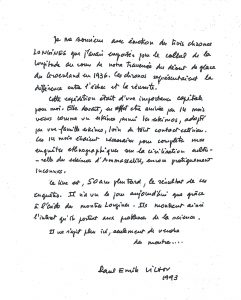 Je me souviens avec émotion des trois chronos
Longines que j'avais emportés pour le calcul de la
longitude au cours de notre traversée du désert de glace
du Groenland en 1936. Ces chronos représentaient la
différence entre l'échec et la réussite.
Cette expédition était d'une importance capitale
pour moi. Elle devait, en effet être suivie de 14 mois
vécus comme un eskimo parmi les eskimos, adopté
par une famille eskimo, loin de tout contact extérieur.
Ces 14 mois étaient nécessaires pour compléter mes
enquêtes ethnographiques sur la civilisation
des eskimos d'Ammassalik, encore pratiquement
inconnue.
Ce livre est, 50 ans plus tard, le résultat de ces
enquêtes. Il n'a vu le jour aujourd'hui que grâce
à l'aide des montres Longines. Ils montrent ainsi
l'intérêt qu'ils portent aux problèmes de la science.
Il ne s'agit plus ici, seulement de vendre
des montres...
Paul Emile Victor
1993